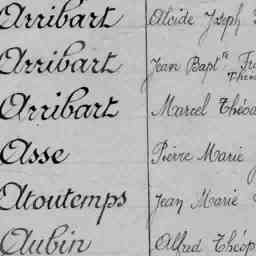 Arribart Alcide Joseph
Arribart Jean Bapt.te
Arribart Marcel
Asse Pierre Marie
Atoutemps Jean Marie
Aubin Alfred